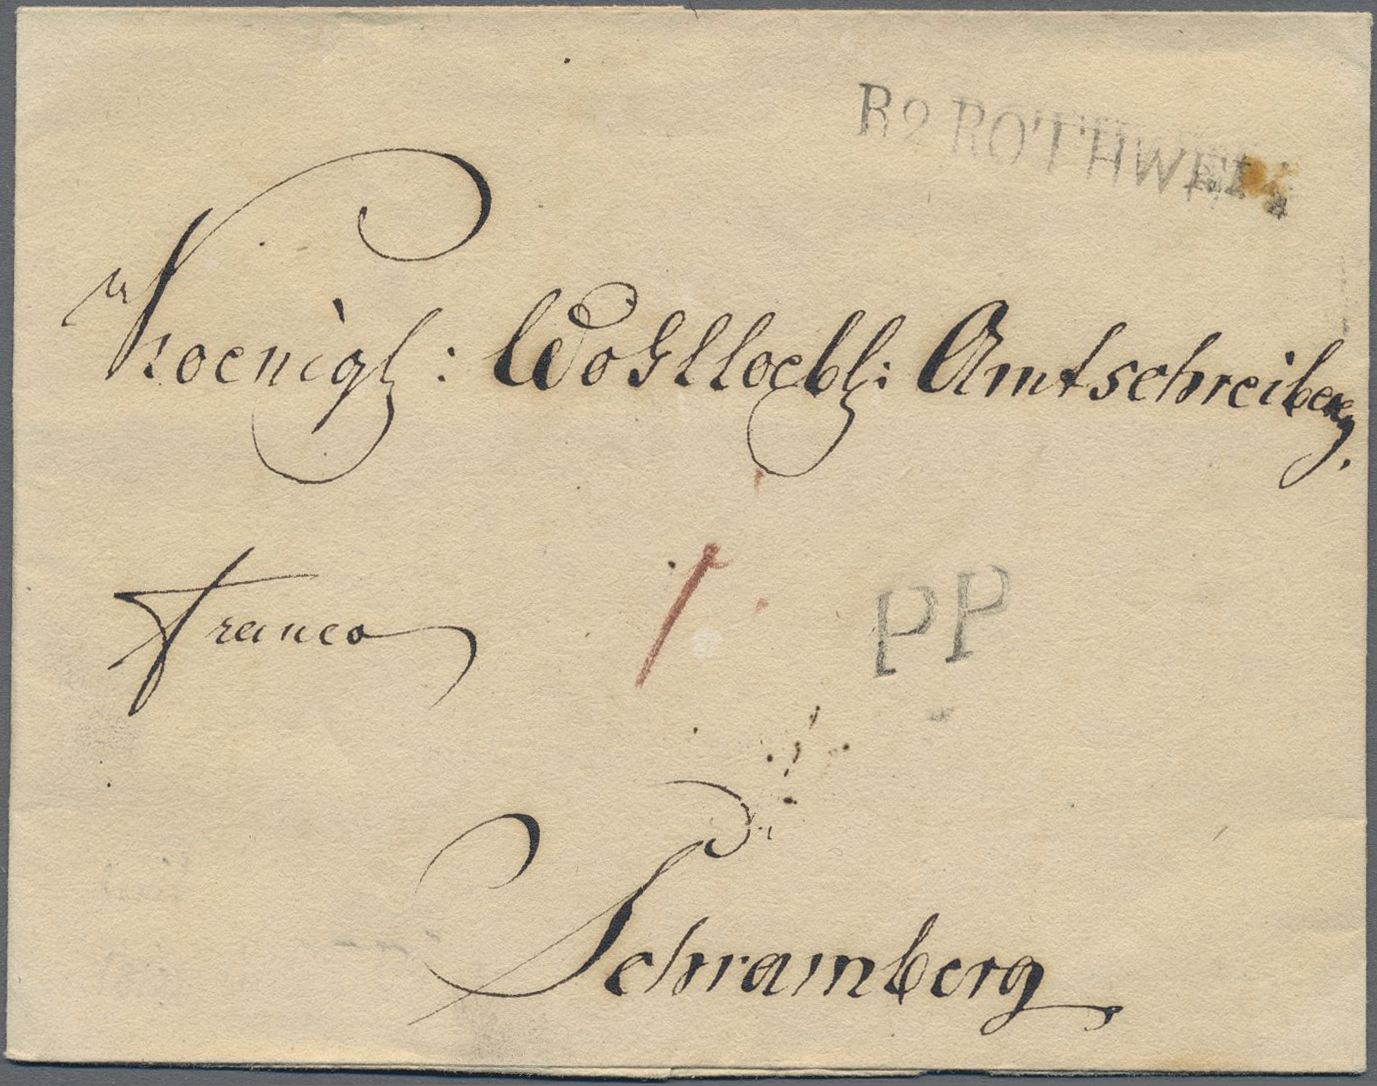 R2 ROTHWEIL
Koenigl: Wohlloebl: Amtschreiberey.
franco
PP
Schramberg